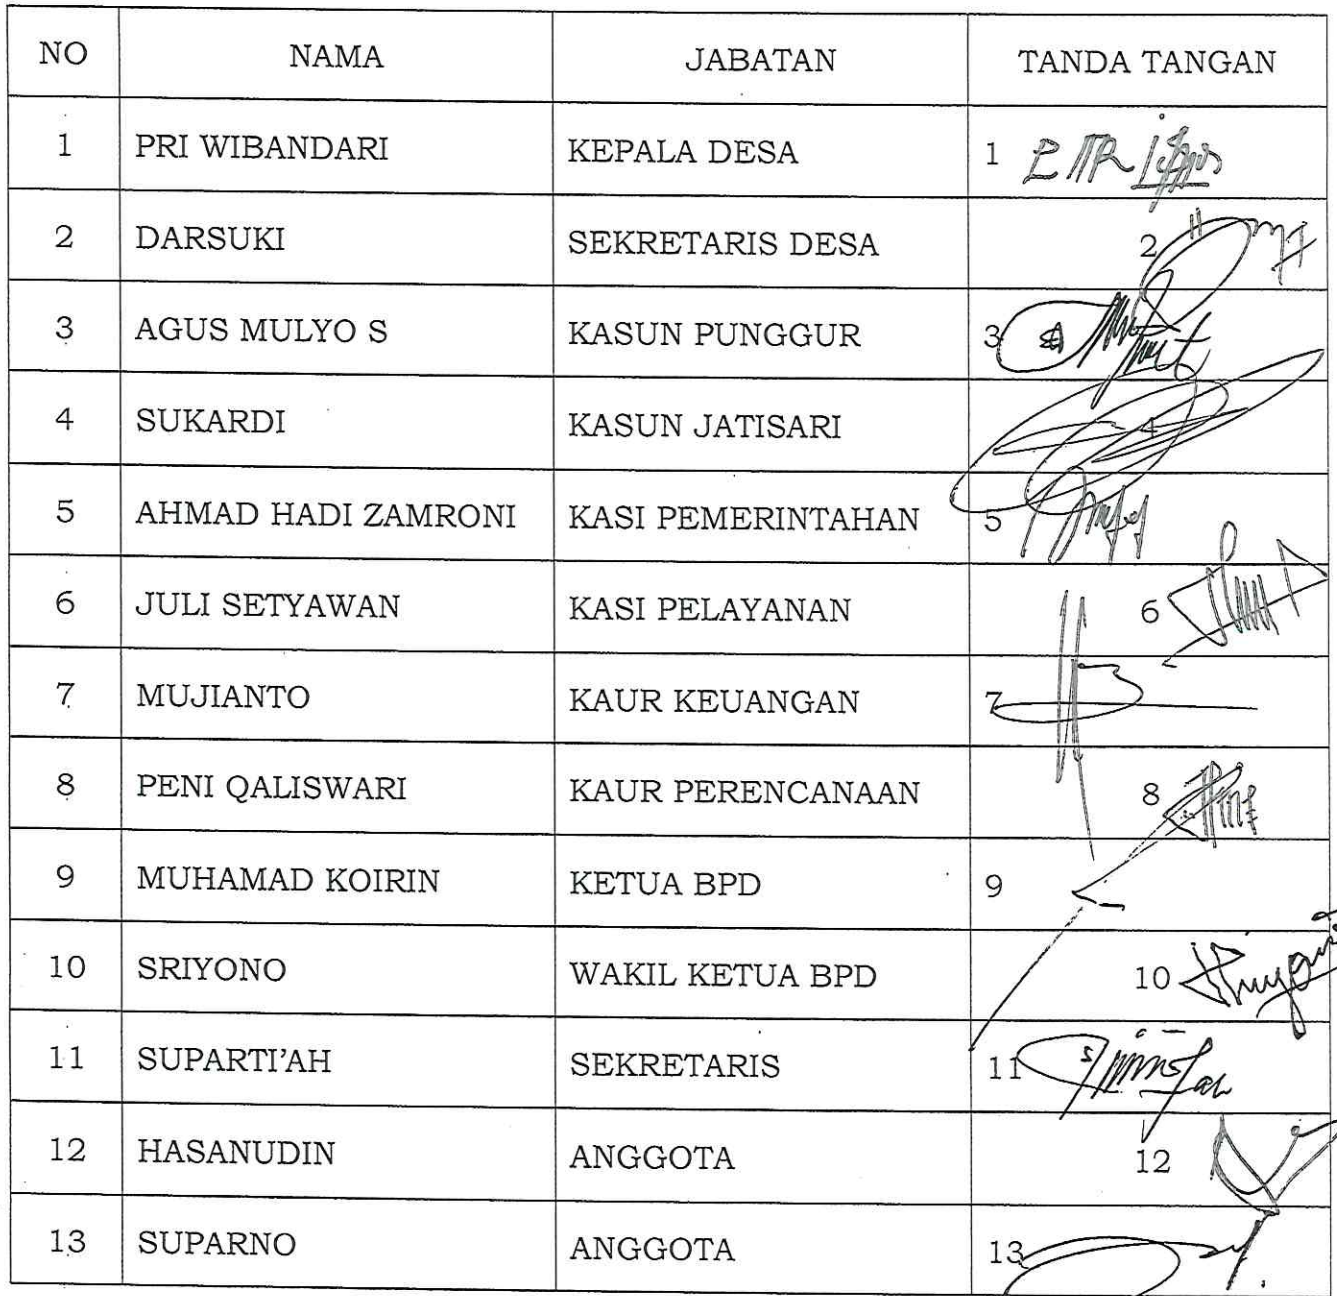 NO NAMA JABATAN TANDA TANGAN
1 PRI WIBANDARI KEPALA DESA 1
2 DARSUKI SEKRETARIS DESA 2
3 AGUS MULYO S KASUN PUNGGUR 3
4 SUKARDI KASUN JATISARI 4
5 AHMAD HADI ZAMRONI KASI PEMERINTAHAN 5
6 JULI SETYAWAN KASI PELAYANAN 6
7 MUJIANTO KAUR KEUANGAN 7
8 PENI QALISWARI KAUR PERENCANAAN 8
9 MUHAMAD KOIRIN KETUA BPD 9
10 SRIYONO WAKIL KETUA BPD 10
11 SUPARTI'AH SEKRETARIS 11
12 HASANUDIN ANGGOTA 12
13 SUPARNO ANGGOTA 13